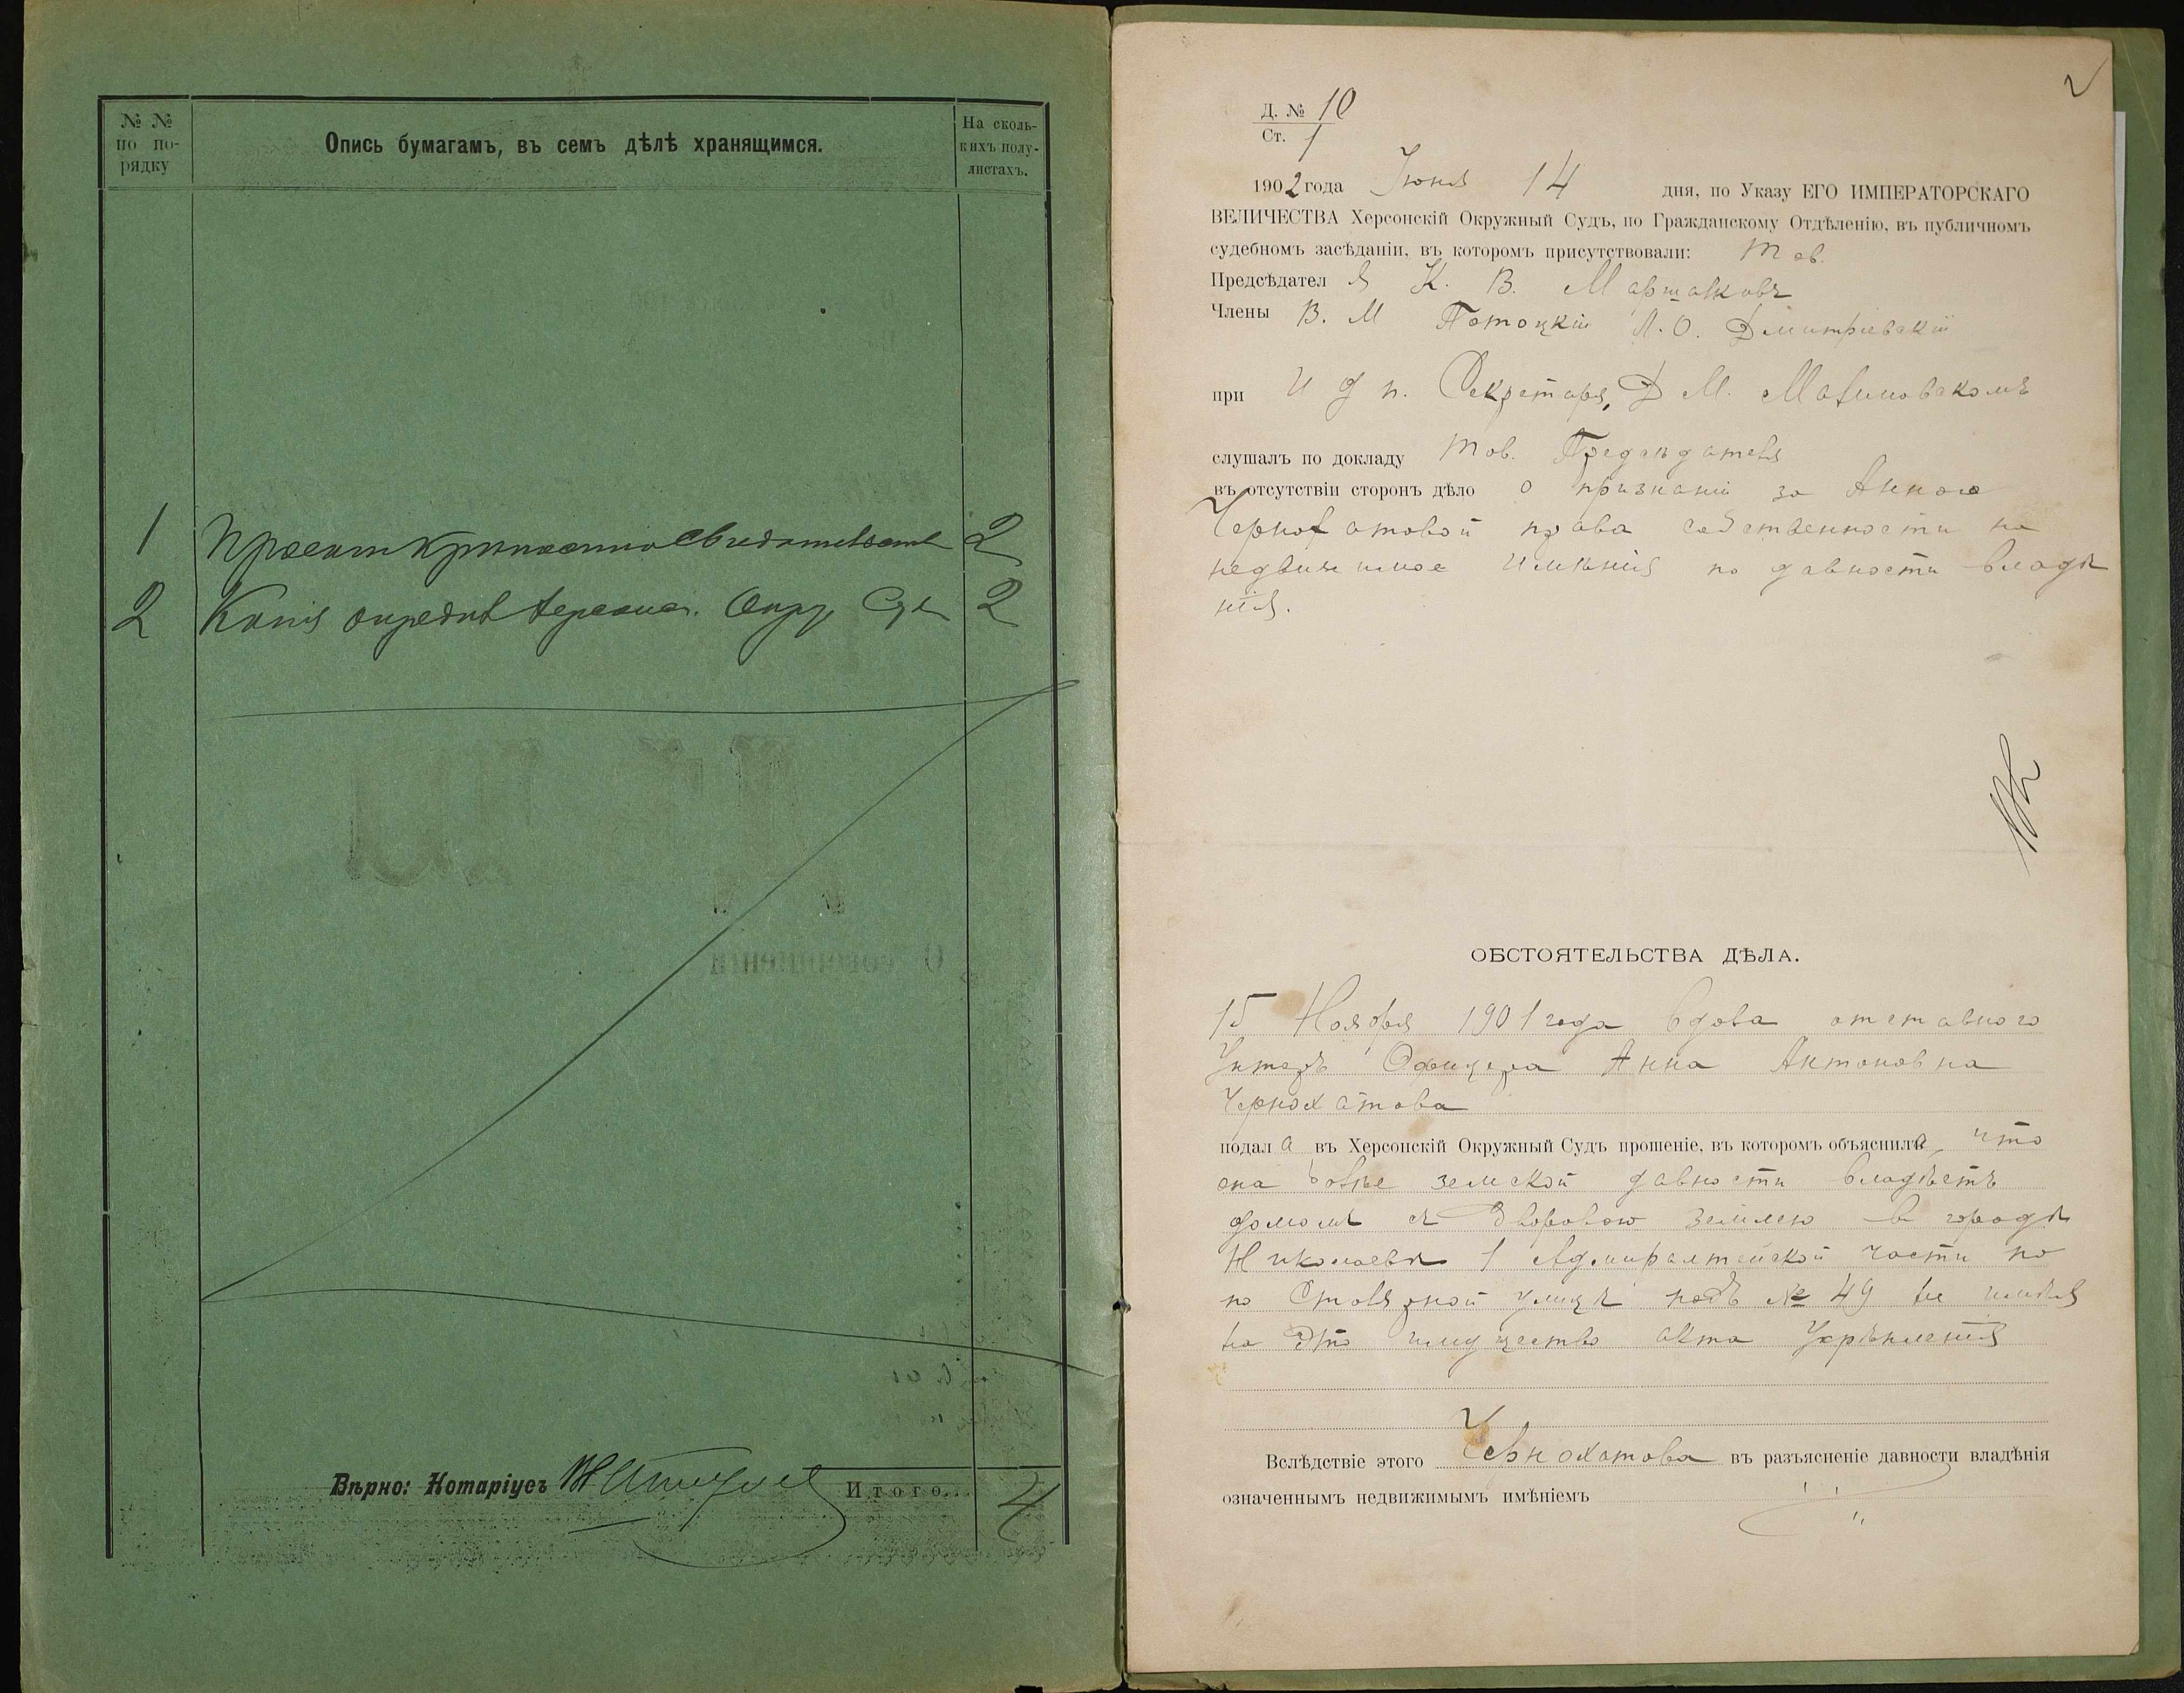 № № по по- рядку
Опись бумагамъ, въ семъ дѣлѣ хранящимся.
На сколь- кихъ полу- листахъ.
1 Проектъ крѣпостно свидѣтельств 2
2 Копія опредѣл Херсонс. Окру Суда 2
Вѣрно: Нотаріусъ
Итого... 4
2
Д. № 10
Ст. 1
1902 года Іюня 14 дня, по Указу ЕГО ИМПЕРАТОРСКАГО
ВЕЛИЧЕСТВА Херсонскій Окружный Судъ, по Гражданскому Отдѣленію, въ публичномъ
судебномъ засѣданіи, въ которомъ присутствовали: Тов.
Предсѣдателя К. В.
Члены В. М Потоцкій Л. О. Дмитріевскій
при И д п. Секретаря, Д М.
слушалъ по докладу Тов. Предсѣдателя
въ отсутствіи сторонъ дѣло о признаніи за Анною
Чернохатовой права собственности на
недвижимое имѣнія по давности владѣ
нія.
ОБСТОЯТЕЛЬСТВА ДѢЛА.
15 Ноября 1901 года вдова отставного
Унтеръ Офицера Анна Антоновна
Чернохатова
подала въ Херсонскій Окружный Судъ прошеніе, въ которомъ объяснила, что
она болѣе земской давности владѣетъ
домомъ съ дворовою землею в городѣ
Николаевѣ 1 Адмиралтейской части по
по Столярной улицѣ подъ № 49 не имѣя
на это имущество акта укрѣпленія
Вслѣдствіе этого Чернохатова въ разъясненіе давности владѣнія
означеннымъ недвижимымъ имѣніемъ